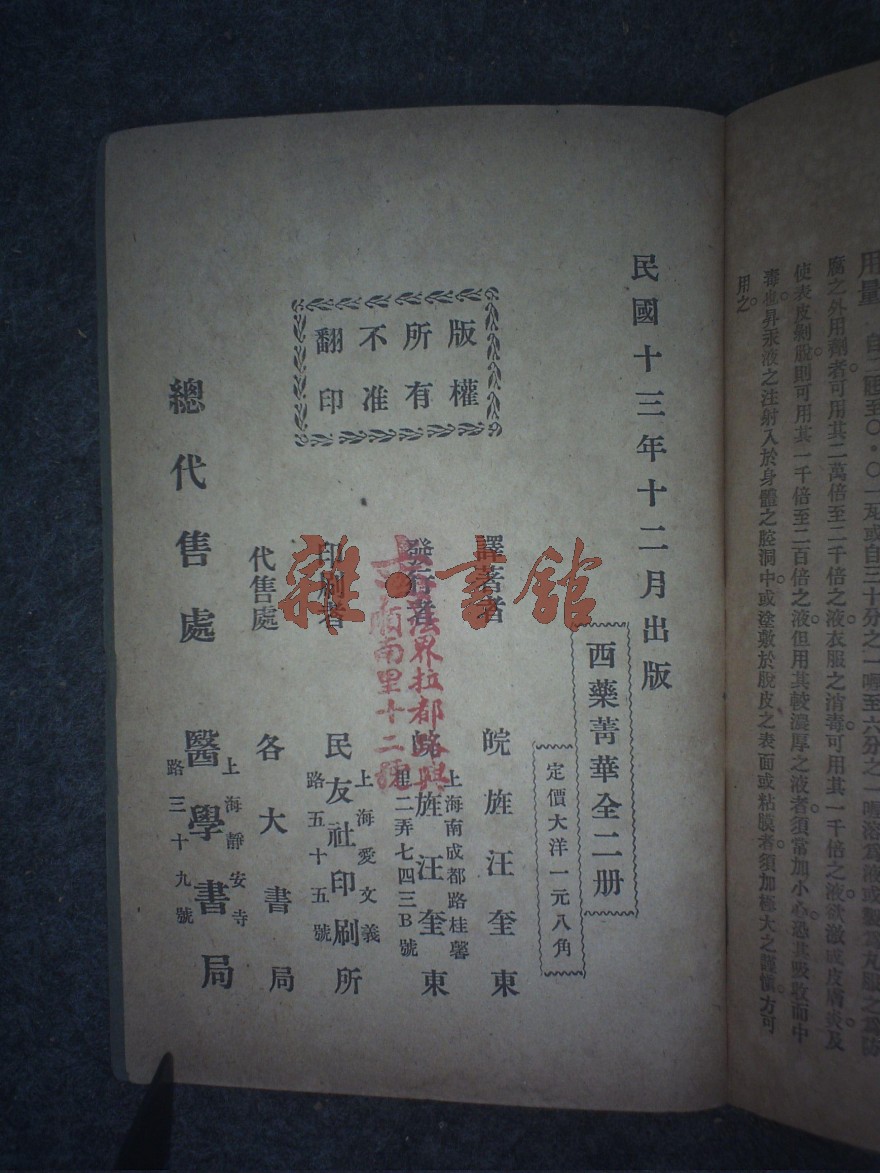 用之
毒也昇汞液之注射入於身體之腔洞中或塗敷於脫皮之表面或粘膜者須加極大之謹愼方可
使表皮剝脫則可用其一千倍至二百倍之液但用其較濃厚之液者須常加小心恐其吸收而中
腐之外用劑者可用其二萬倍至二千倍之液衣服之消毒可用其一千倍之液欲激成皮膚炎及
用量
民國十三年十二月出版
西藥菁華全二册
定價大洋一元八角
版權
所有
不准
翻印
譯著者 皖旌汪奎東
發行者 皖旌汪奎東
上海南成都路桂馨
里二弄七四三B號
印刷者 民友社印刷所
上海愛文義
路五十五號
代售處 各大書局
總代售處 醫學書局
上海靜安寺
路三十九號
法界拉都路興
順南里十二號
雜·書館